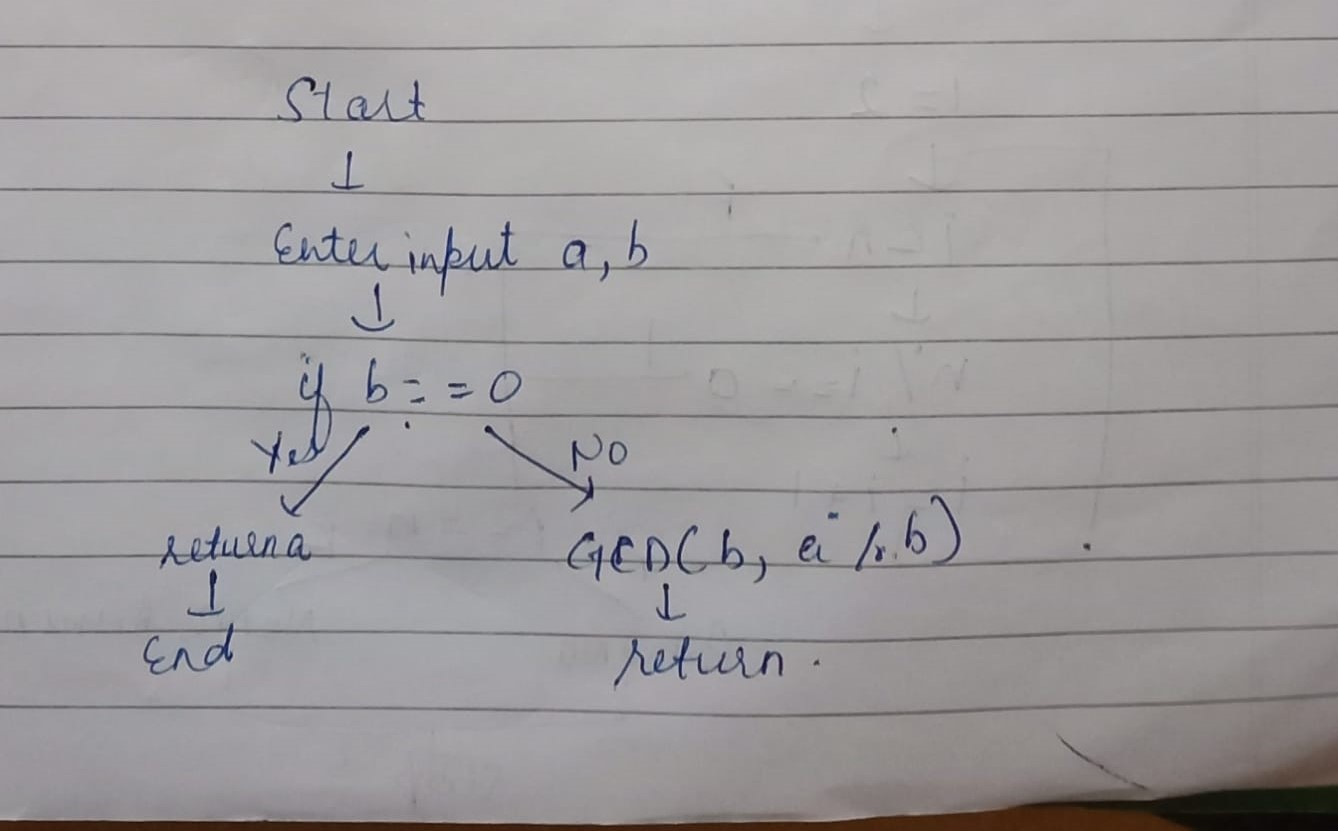 Start
↓
Enter input a, b
↓
if b == 0
Yes No
return a GCD(b, a % b)
↓ ↓
End return.